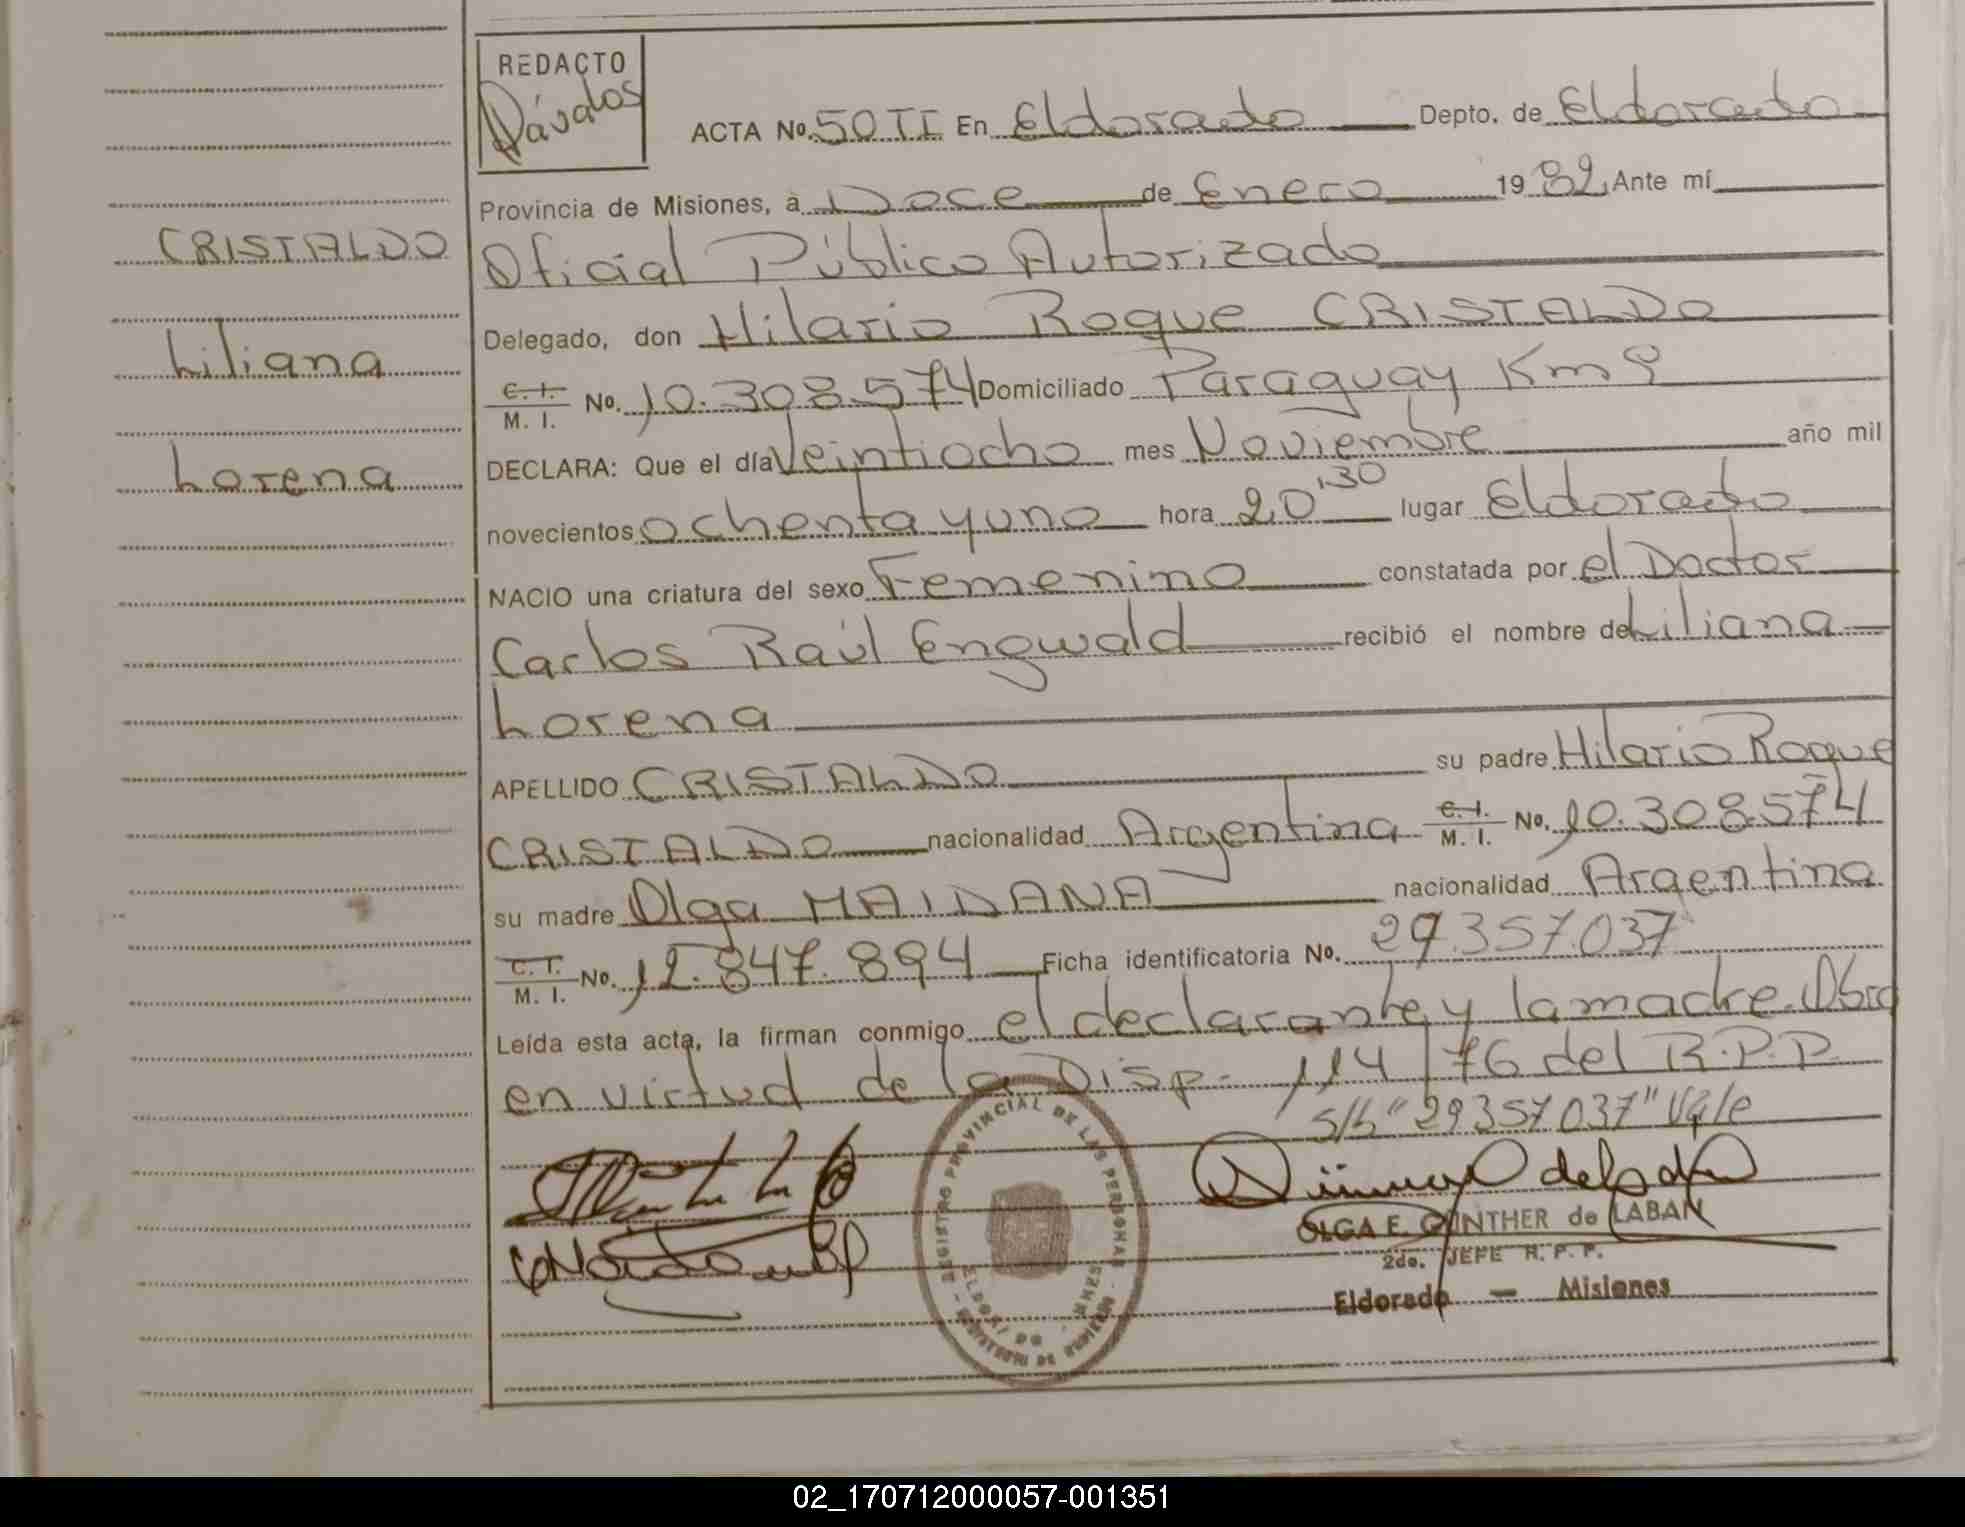 REDACTO
Dávalos
ACTA No. 50 TI En Eldorado Depto. de Eldorado
Provincia de Misiones, a Doce de Enero 1982 Ante mí
CRISTALDO
Oficial Público Autorizado
Delegado, don Hilario Roque CRISTALDO
Liliana
C. I. / M. I. No. 10.308.574 Domiciliado Paraguay Km 9
DECLARA: Que el día Veintiocho mes Noviembre año mil
Lorena
novecientos ochenta y uno hora 20,30 lugar Eldorado
NACIO una criatura del sexo Femenino constatada por el Doctor
Carlos Raúl Engwald recibió el nombre de Liliana
Lorena
APELLIDO CRISTALDO su padre Hilario Roque
CRISTALDO nacionalidad Argentina C. I. / M. I. No. 10.308.574
su madre Olga MAIDANA nacionalidad Argentina
C. I. / M. I. No. 12.847.894 Ficha identificatoria No. 29.357.037
Leída esta acta, la firman conmigo el declarante y la madre. Obra
en virtud de la Disp. 114/76 del R.P.P.
s/b "29357037" Vale
REGISTRO PROVINCIAL DE LAS PERSONAS
ELDORADO
MISIONES
OLGA E. GUNTHER de LABAN
2do. JEFE R. P. P.
Eldorado — Misiones
02_170712000057-001351